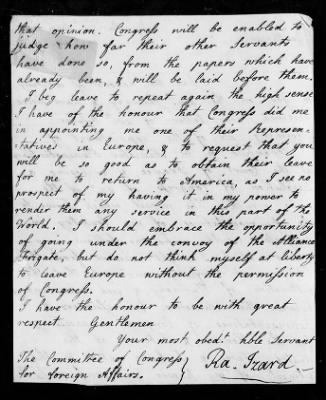 that opinion. Congress will be enabled to
judge how far their other Servants
have done so, from the papers which have
already been, & will be laid before them.
I beg leave to repeat again the high sense
I have of the honour that Congress did me
in appointing me one of their Represen-
tatives in Europe, & to request that you
will be so good as to obtain their leave
for me to return to America, as I see no
prospect of my having it in my power to
render them any service in this part of the
World. I should embrace the opportunity
of going under the convoy of the Alliance
Frigate, but do not think myself at liberty
to leave Europe without the permission
of Congress.
I have the honour to be with great
respect Gentlemen
Your most obedt. hble Servant
The Committee of Congress } Ra. Izard.
for foreign Affairs.